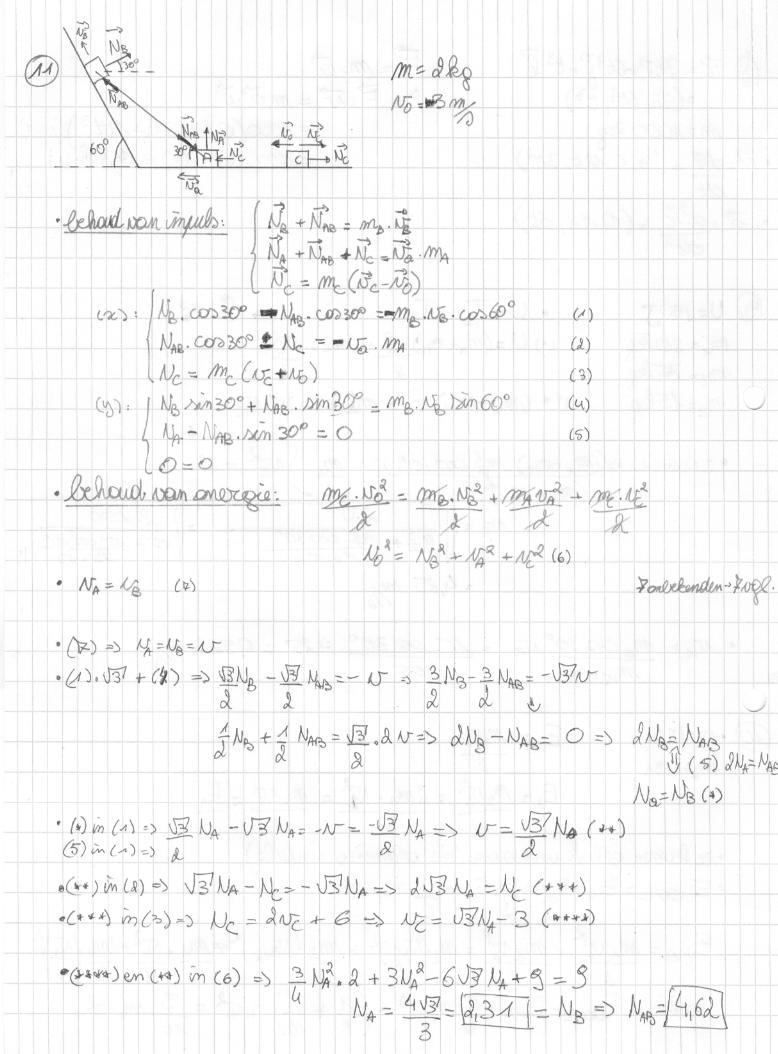 11
N⃗_B
N⃗_B
30°
N⃗_AB
60°
N⃗_AB
N⃗_A
30°
A
N⃗_C
v⃗_a
v⃗_0
v⃗_C
C
N⃗_C
m = 2kg
v_0 = 3 m/s
• behoud van impuls:
N⃗_B + N⃗_AB = m_B . v⃗_B
N⃗_A + N⃗_AB + N⃗_C = v⃗_a . m_A
N⃗_C = m_C (v⃗_C - v⃗_0)
(x): N_B . cos30° - N_AB . cos30° = - m_B . v_B . cos60° (1)
N_AB . cos30° ± N_C = - v_a . m_A (2)
N_C = m_C (v_C + v_0) (3)
(y): N_B sin30° + N_AB . sin30° = m_B . v_B sin60° (4)
N_A - N_AB . sin 30° = 0 (5)
0 = 0
• behoud van energie: m_C . v_0²/2 = m_B . v_B²/2 + m_A v_A²/2 + m_C . v_C²/2
v_0² = v_B² + v_A² + v_C² (6)
• v_A = v_B (7)
7 onbekenden → 7 vgl.
• (7) => v_A = v_B = v
• (1).√3 + (4) => √3/2 N_B - √3/2 N_AB = - v => 3/2 N_B - 3/2 N_AB = -√3 v
1/2 N_B + 1/2 N_AB = √3/2 . 2 v => 2N_B - N_AB = 0 => 2N_B = N_AB
⇕ (5) 2N_A = N_AB
N_a = N_B (*)
• (*) in (1) => √3/2 N_A - √3 N_A = -v = -√3/2 N_A => v = √3/2 N_A (**)
(5) in (1) =>
• (**) in (2) => √3 N_A - N_C = - √3 N_A => 2√3 N_A = N_C (***)
• (***) in (3) => N_C = 2v_C + 6 => v_C = √3 N_A - 3 (****)
• (****) en (**) in (6) => 3/4 N_A² . 2 + 3N_A² - 6√3 N_A + 9 = 9
N_A = 4√3/3 = 2,31 = N_B => N_AB = 4,62